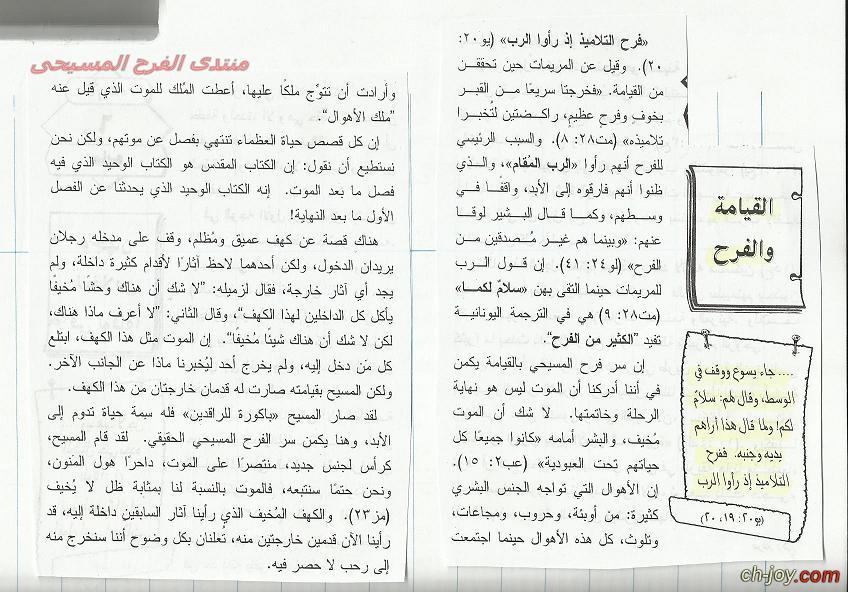 منتدى الفرح المسيحى
القيامة
والفرح
.... جاء يسوع ووقف في
الوسط، وقال لهم: سلامٌ
لكم! ولما قال هذا أراهم
يديه وجنبه. ففرح
التلاميذ إذ رأوا الرب
(يو٢٠: ١٩، ٢٠)
«فرح التلاميذ إذ رأوا الرب» (يو٢٠:
٢٠). وقيل عن المريمات حين تحققن
من القيامة. «فخرجتا سريعًا من القبر
بخوفٍ وفرحٍ عظيمٍ، راكضتين لتُخبرا
تلاميذه» (مت٢٨: ٨). والسبب الرئيسي
للفرح أنهم رأوا «الرب المُقام»، والذي
ظنوا أنهم فارقوه إلى الأبد، واقفًا في
وسطهم، وكما قال البشير لوقا
عنهم: «وبينما هم غير مُصدقين من
الفرح» (لو٢٤: ٤١). إن قول الرب
للمريمات حينما التقى بهن «سلامٌ لكما»
(مت٢٨: ٩) هي في الترجمة اليونانية
تفيد "الكثير من الفرح".
إن سر فرح المسيحي بالقيامة يكمن
في أننا أدركنا أن الموت ليس هو نهاية
الرحلة وخاتمتها. لا شك أن الموت
مُخيف، والبشر أمامه «كانوا جميعًا كل
حياتهم تحت العبودية» (عب٢: ١٥).
إن الأهوال التي تواجه الجنس البشري
كثيرة: من أوبئة، وحروب، ومجاعات،
وتلوث، كل هذه الأهوال حينما اجتمعت
وأرادت أن تتوّج ملكًا عليها، أعطت المُلك للموت الذي قيل عنه
"ملك الأهوال".
إن كل قصص حياة العظماء تنتهي بفصل عن موتهم، ولكن نحن
نستطيع أن نقول: إن الكتاب المقدس هو الكتاب الوحيد الذي فيه
فصل ما بعد الموت. إنه الكتاب الوحيد الذي يحدثنا عن الفصل
الأول ما بعد النهاية!
هناك قصة عن كهف عميق ومُظلم، وقف على مدخله رجلان
يريدان الدخول، ولكن أحدهما لاحظ آثارًا لأقدام كثيرة داخلة، ولم
يجد أي آثار خارجة، فقال لزميله: "لا شك أن هناك وحشًا مُخيفًا
يأكل كل الداخلين لهذا الكهف"، وقال الثاني: "لا أعرف ماذا هناك،
لكن لا شك أن هناك شيئًا مُخيفًا". إن الموت مثل هذا الكهف، ابتلع
كل مَن دخل إليه، ولم يخرج أحد ليُخبرنا ماذا عن الجانب الآخر.
ولكن المسيح بقيامته صارت له قدمان خارجتان من هذا الكهف.
لقد صار المسيح «باكورة للراقدين» فله سِمة حياة تدوم إلى
الأبد، وهنا يكمن سر الفرح المسيحي الحقيقي. لقد قام المسيح،
كرأس لجنس جديد، منتصرًا على الموت، داحرًا هول المَنون،
ونحن حتمًا سنتبعه، فالموت بالنسبة لنا بمثابة ظل لا يُخيف
(مز٢٣). والكهف المُخيف الذي رأينا آثار السابقين داخلة إليه، قد
رأينا الآن قدمين خارجتين منه، تعلنان بكل وضوح أننا سنخرج منه
إلى رحب لا حصر فيه.
ch-joy.com